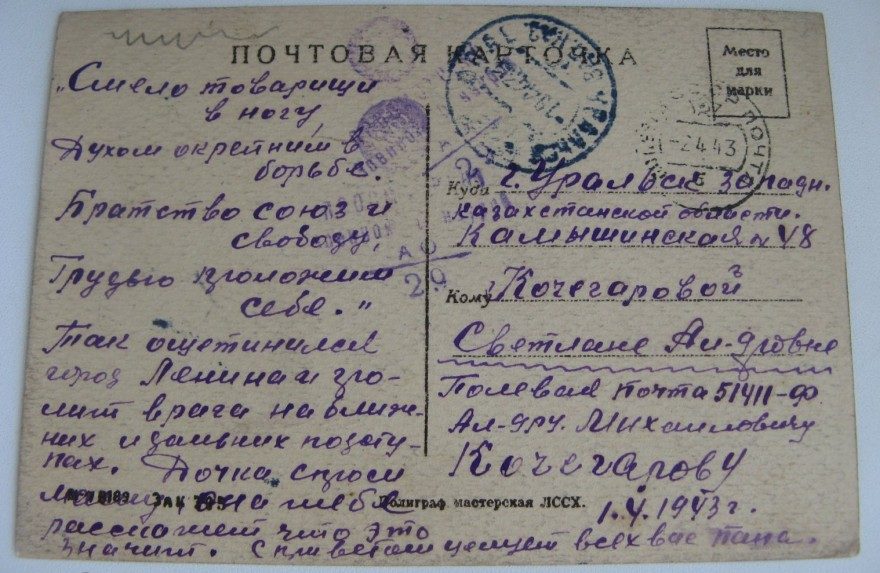 ПОЧТОВАЯ КАРТОЧКА
Место
для
марки
„Смело товарищи
в ногу,
Духом окрепним в
борьбе.
Братство союз и
свободу,
Грудью проложим
себе."
Так ощетинился
город Ленина и гро-
мит врага на ближ-
них и дальних подсту-
пах. Дочка спроси
маму она тебе
расскажет что это
значит. С приветом целует всех вас папа.
Куда г. Уральск западн.
казахстанской области.
Камышинская № 48
Кому Кочегаровой
Светлане Ал-дровне
Полевая почта 51411-ф
Ал-дру. Михайловичу
Кочегарову
1.4.1943г.
Полиграф. мастерская ЛССХ.
-2.4.43
29